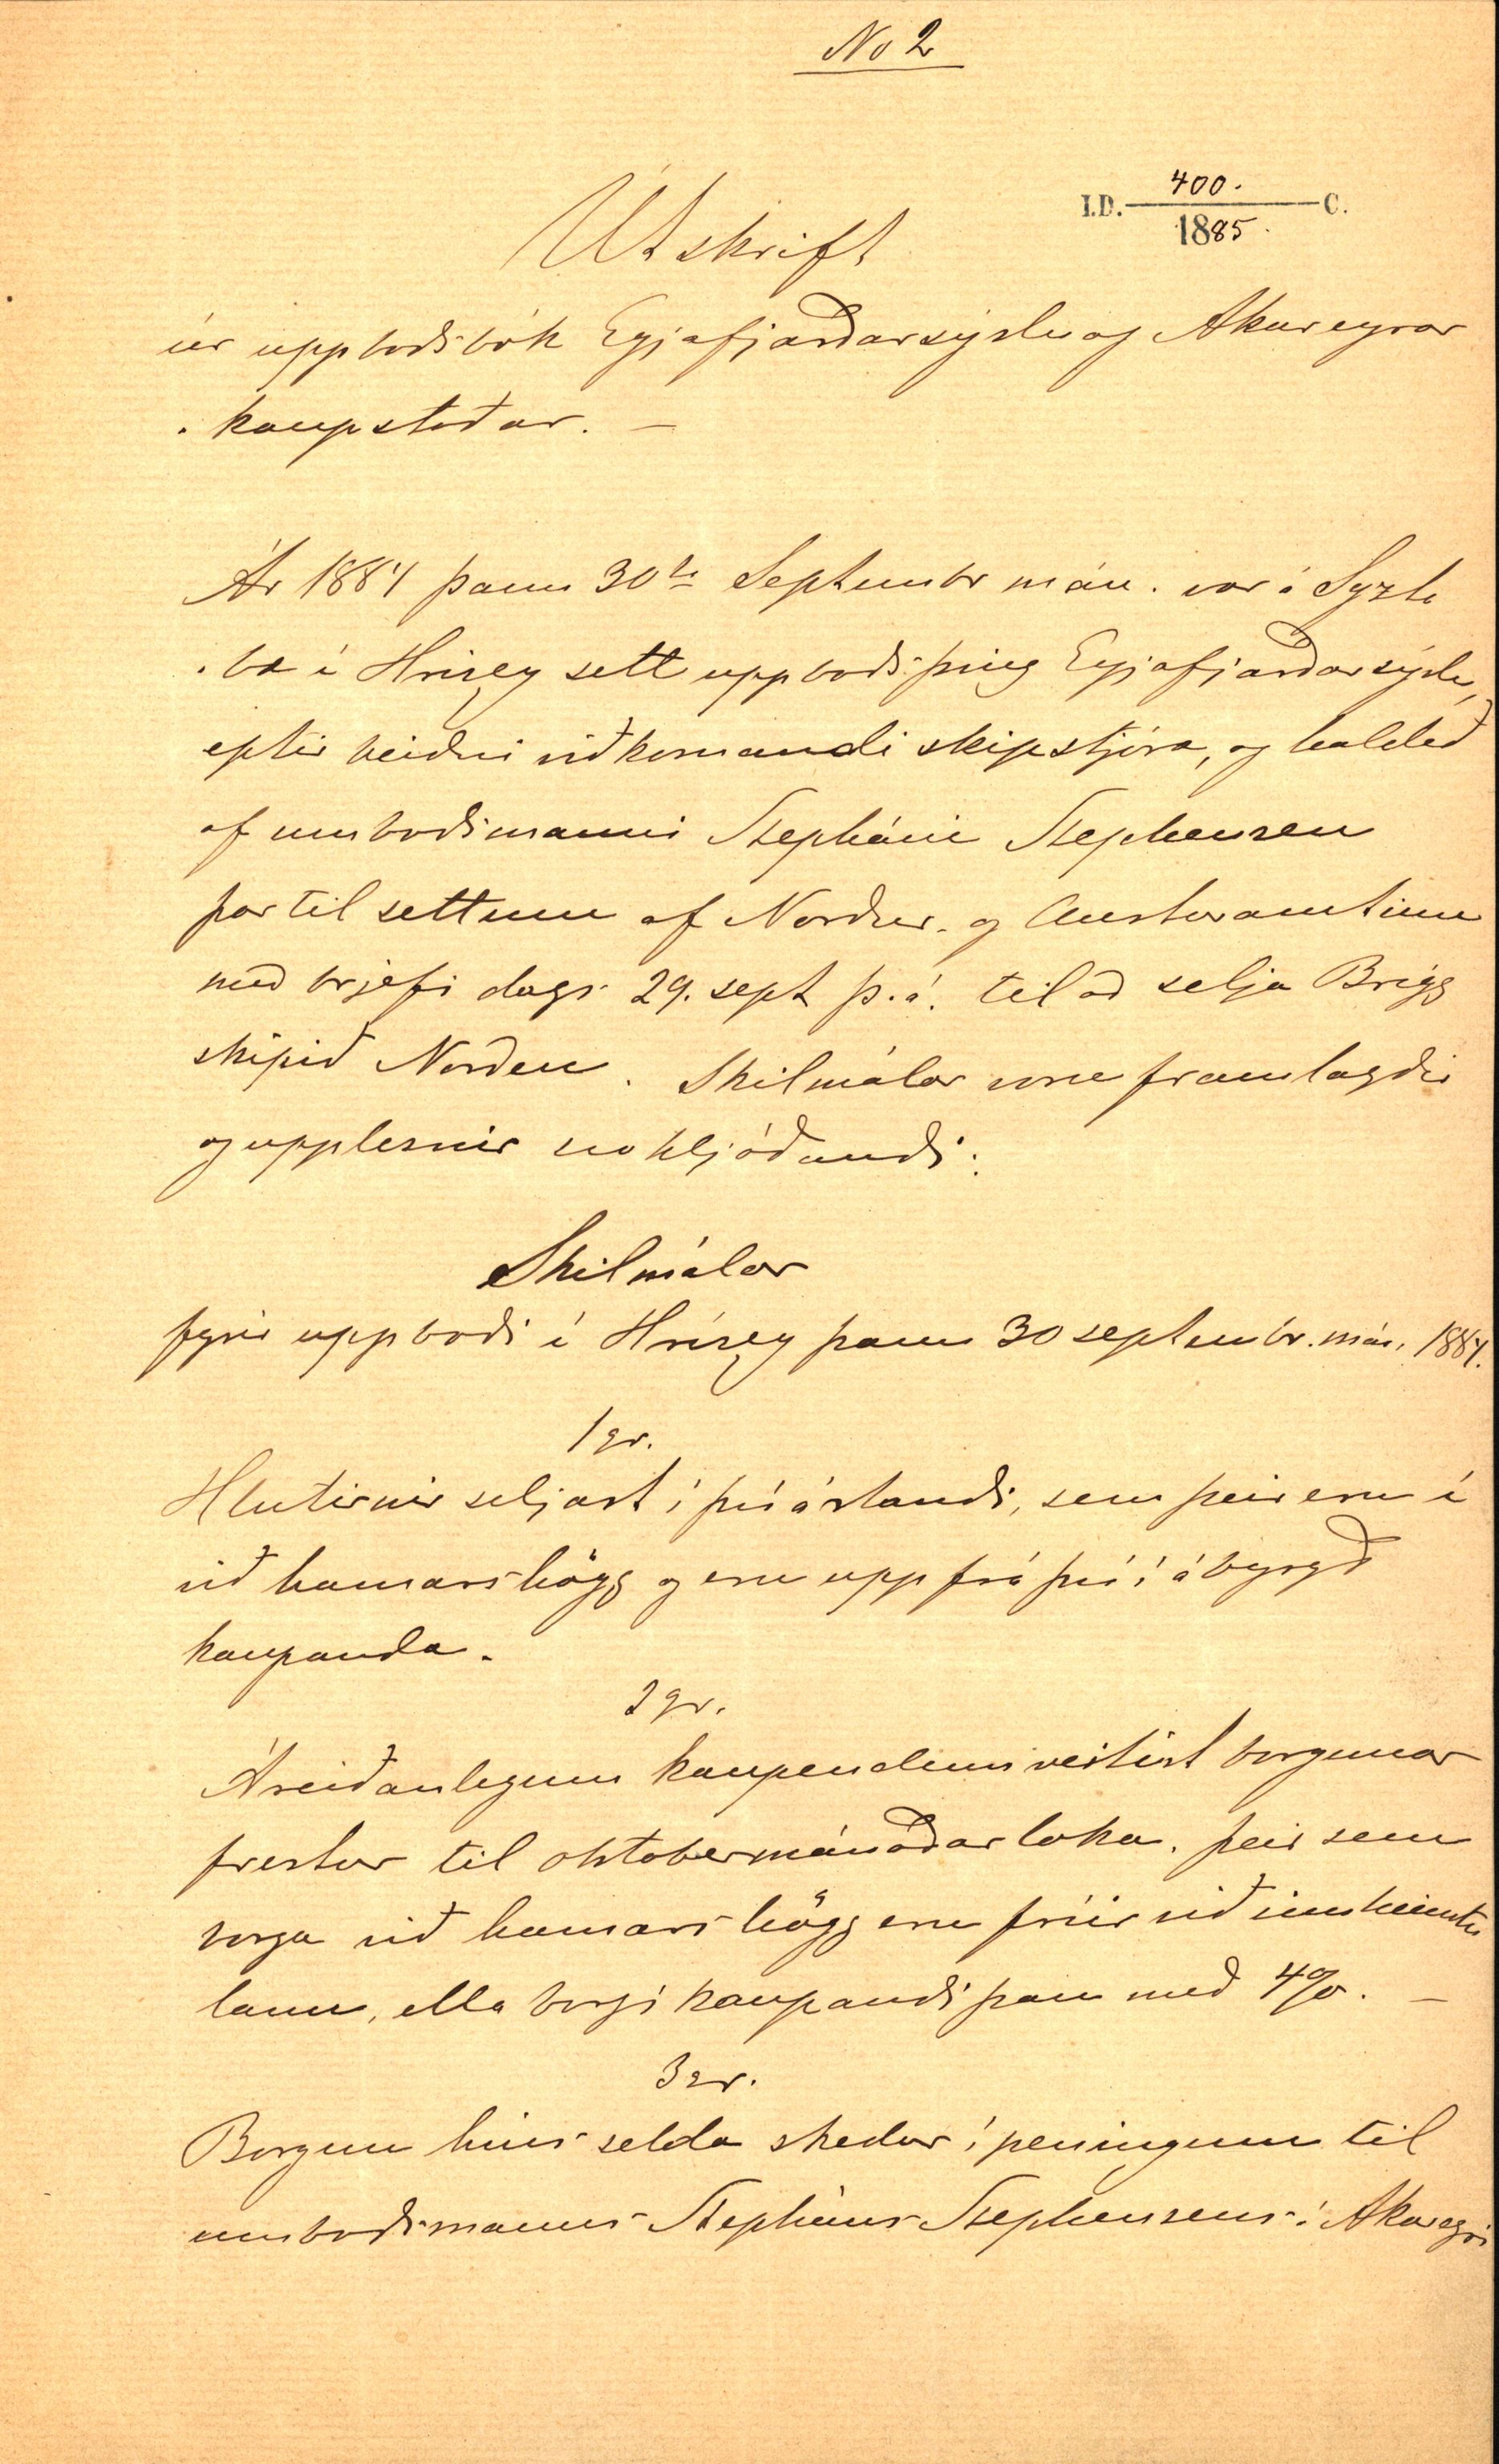 No 2
I.D. 400. 1885. C.
Útskrift
úr uppboðsbók Eyjafjarðarsýslu og Akureyrar
kaupstaðar. –
Ár 1884 þann 30ta Septembr mán. var í Syzta
bæ í Hrísey sett uppboðsþing Eyjafjarðarsýslu,
eptir beiðni viðkomandi skipstjóra, og haldið
af umboðsmanni Stepháni Stephensen
þar til settum af Norður- og Austuramtinu
með brjefi dags 29. sept þ.á. til að selja Brigg
skipið Norden. Skilmálar voru framlagðir
og upplesnir svo hljóðandi:
Skilmálar
fyrir uppboði í Hrísey þann 30 septembr. mán. 1884.
1 gr.
Hlutirnir seljast í því ástandi, sem þeir eru í
við hamarshögg og eru upp frá því í ábyrgð
kaupanda.
2 gr.
Áreiðanlegum kaupendum veitist borgunar
frestur til októbermánaðarloka, þeir sem
borga við hamarshögg eru fríir við innheimtu
laun, ella borgi kaupandi þau með 4%. –
3 gr.
Borgun hins selda skedur í peningum til
umboðsmanns Stepháns Stephensens í Akureyri